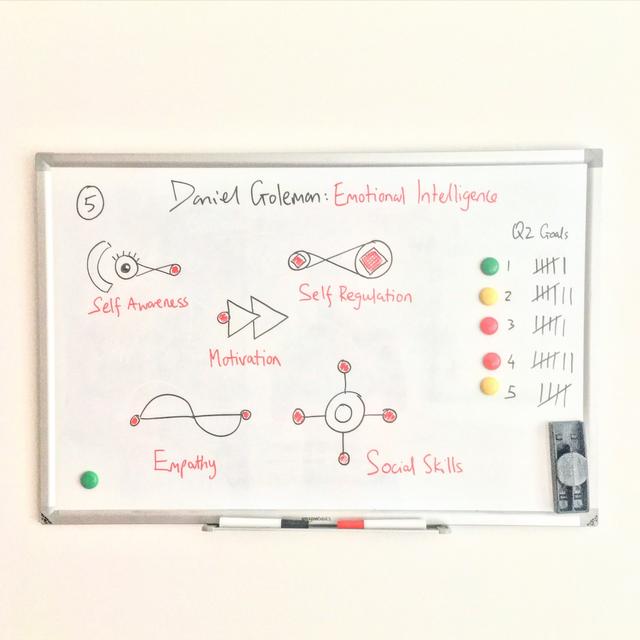 5
Daniel Goleman: Emotional Intelligence
Q2 Goals
Self Awareness
Self Regulation
Motivation
Empathy
Social Skills
1
2
3
4
5